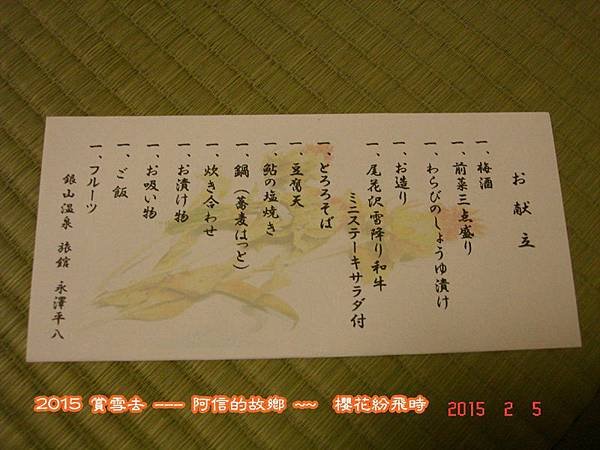 お献立
一、梅酒
一、前菜三点盛り
一、わらびのしょうゆ漬け
一、お造り
一、尾花沢雪降り和牛
ミニステーキサラダ付
一、とろろそば
一、豆富天
一、鮎の塩焼き
一、鍋（蕎麦はっと）
一、炊き合わせ
一、お漬け物
一、お吸い物
一、ご飯
一、フルーツ
銀山温泉 旅館 永澤平八
2015 賞雪去 --- 阿信的故鄉 ~~ 櫻花紛飛時
2015 2 5